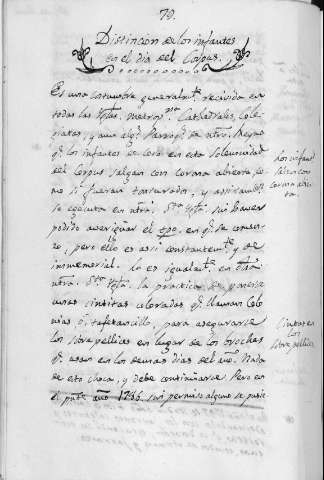 79.
Distincion de los infantes
en el dia del Corpus.
Es una costumbre generalmte. recivida en
todas las Igªs. Metropnªs. Cathedrales, Cole-
giatas, y aun algs. Parroqs. de ntro. Reyno
q. los infantes de Coro en esta solemnidad
del Corpus salgan con corona abierta, co-
mo si fueran tonsurados, y assi tambn.
se egecuta en ntra. Sta. Igla. sin haver
podido averiguar el tpo. en q. se comen-
zo, pero ello es assi constantemte. y de
immemorial. Lo es igualmte. en
ntra. Sta. Igla. la practica de ponerse
unas cintitas coloradas q. llaman Colo-
nias o tafetancillo, para asegurarse
las sobrepellices en lugar de los broches
q. usan en los demas dias del año. Nada
de esto choca, y debe continuarse. Pero en
el psnte. año 1786, sin permiso alguno se pusie-
Los infants.
salen con
corona abier-
ta.
Cintas en
las
sobrepellices.